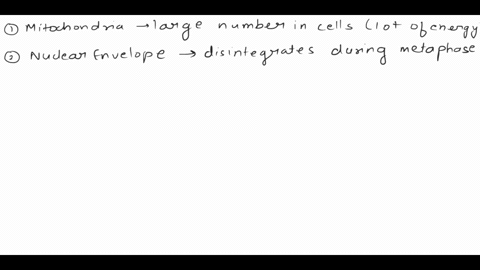 ① Mitochondria → large number in cells (lot of energy
② Nuclear Envelope → disintegrates during metaphase